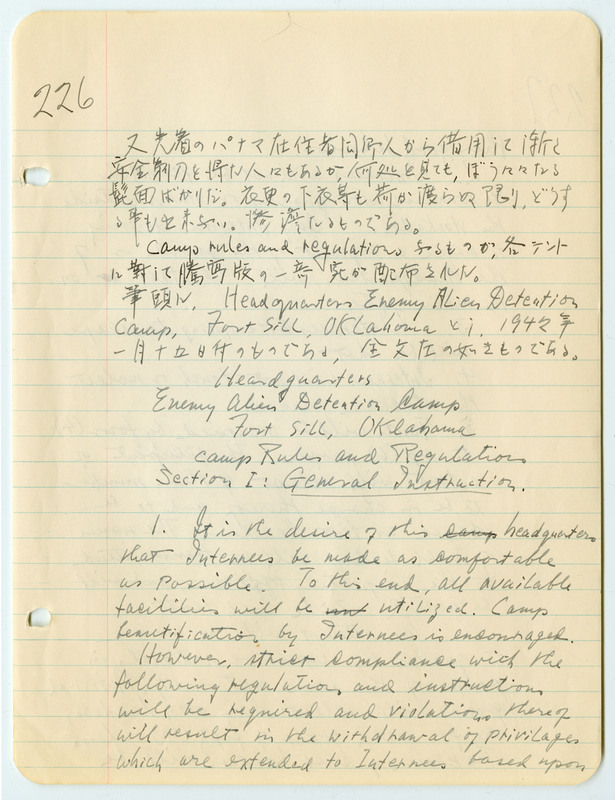 226
又先着のパナマ在住者同郷人から借用して漸く
安全剃刀を得た人々もあるが、何処を見ても、ぼうぼうたる
髭面ばかりだ。衣更の下衣等も荷が渡らぬ限り、どうす
る事も出来ない。惨澹たるものである。
Camp rules and regulations なるものが、各テント
に対して謄写版の一部宛が配布された。
筆頭に、Headquarters Enemy Alien Detention
Camp, Fort Sill, OKlahoma とし、1942年
一月十五日付のものである、全文左の如きものである。
Headquarters
Enemy Alien Detention Camp
Fort Sill, OKlahoma
Camp Rules and Regulations
Section I: General Instruction.
1. It is the desire of this camp headquarters
that Internees be made as comfortable
as possible. To this end, all available
facilities will be utilized. Camp
beautification by Internees is encouraged.
However, strict compliance with the
following regulations and instructions
will be required and violations thereof
will result in the withdrawal of privilages
which are extended to Internees based upon